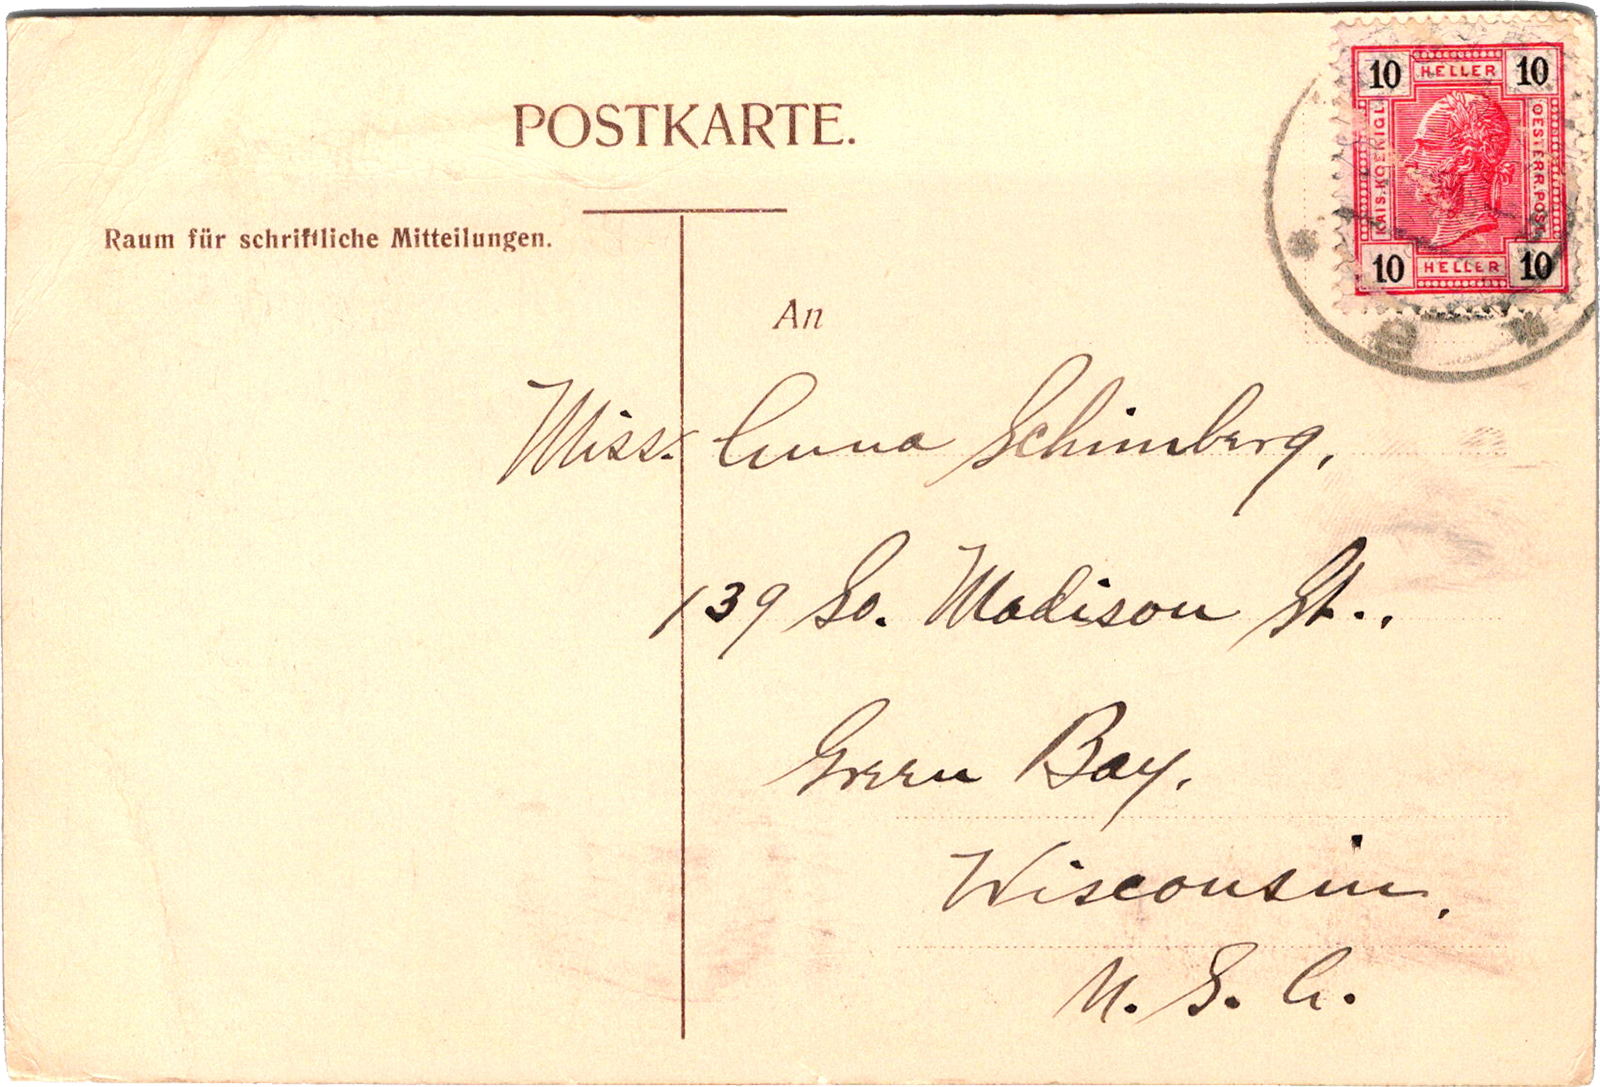 POSTKARTE.
10 HELLER 10
KAIS. KOENIGL.
OESTERR. POST
10 HELLER 10
Raum für schriftliche Mitteilungen.
An
Miss. Anna Schimberg,
139 So. Madison St..,
Green Bay,
Wisconsin,
U. S. A.